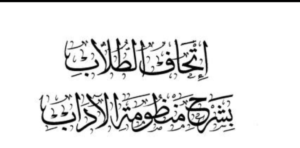 إِتْحَافُ الطُّلَّابِ
بِشَرْحِ مَنْظُومَةِ الْآدَابِ